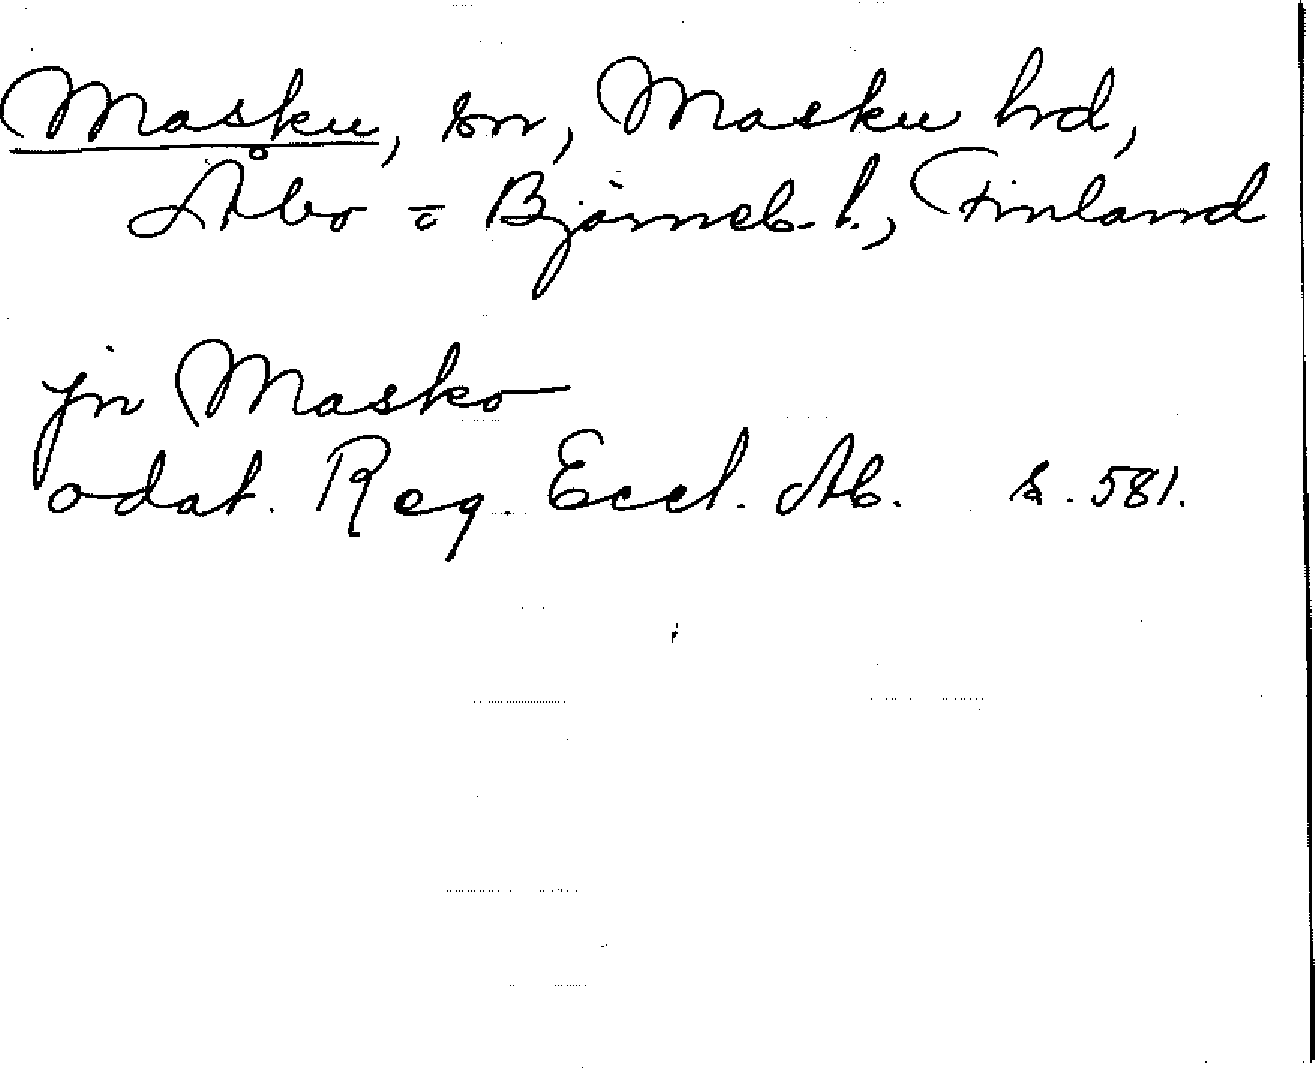 Masku, sn, Masku hd,
Åbo = Björneb. l., Finland
jn Masko
odat. Reg. Eccl. Ab. s. 581.